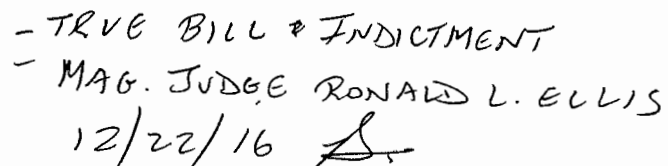 - TRUE BILL & INDICTMENT
- MAG. JUDGE RONALD L. ELLIS
12/22/16